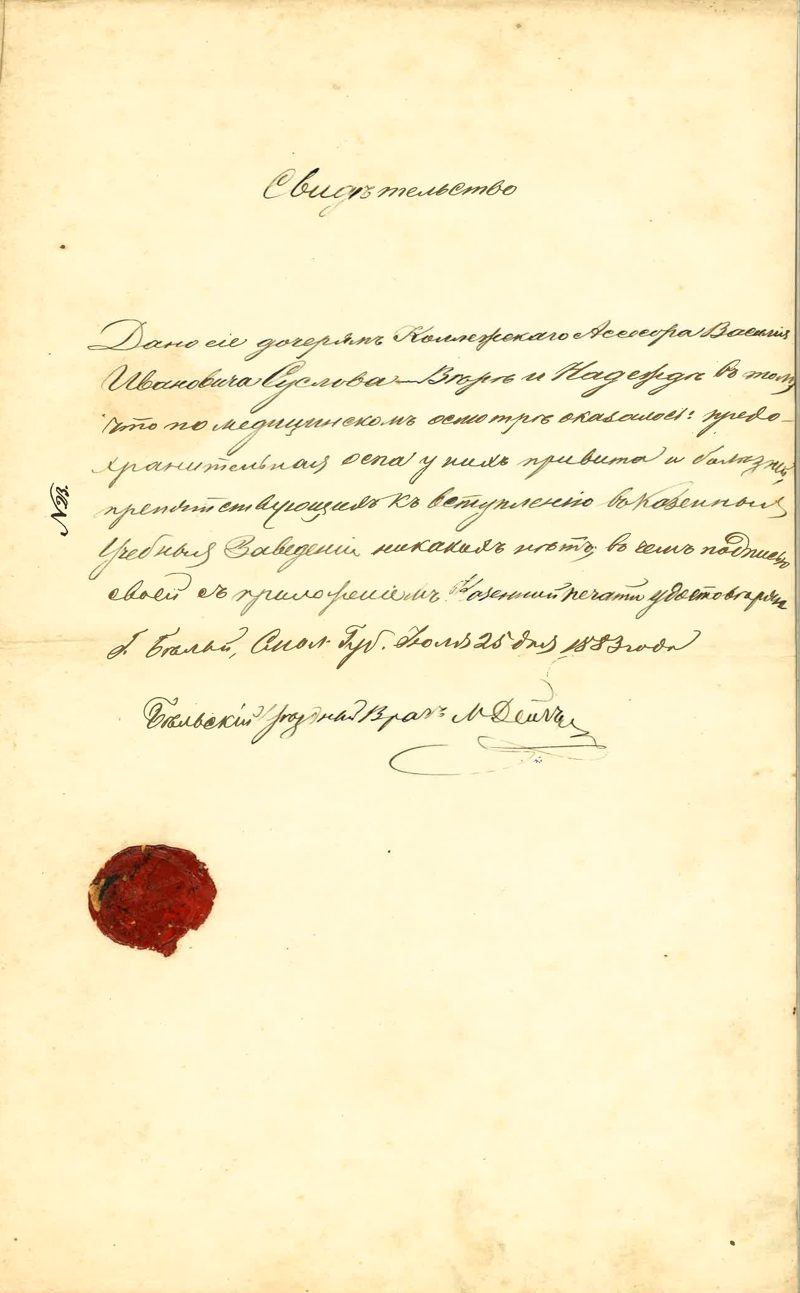 Свидѣтельство
Дано сіе дочерямъ Коллежскаго Ассесора Василія
Ивановича Суслова — Вѣрѣ и Надеждѣ въ томъ,
что по медицинскомъ осмотрѣ оказалось: предо-
хранительная оспа у нихъ привита и болѣзней,
препятствующихъ къ вступленію въ Казенныя
Учебныя Заведенія никакихъ нѣтъ; въ чемъ подписью
своей съ приложеніемъ Казенной печати удостовѣряю
Г. Бѣлый, Смол. Губ. Іюля 25 дня 1883 года
Бѣльскій Уѣздный Врачъ М
№ 93.